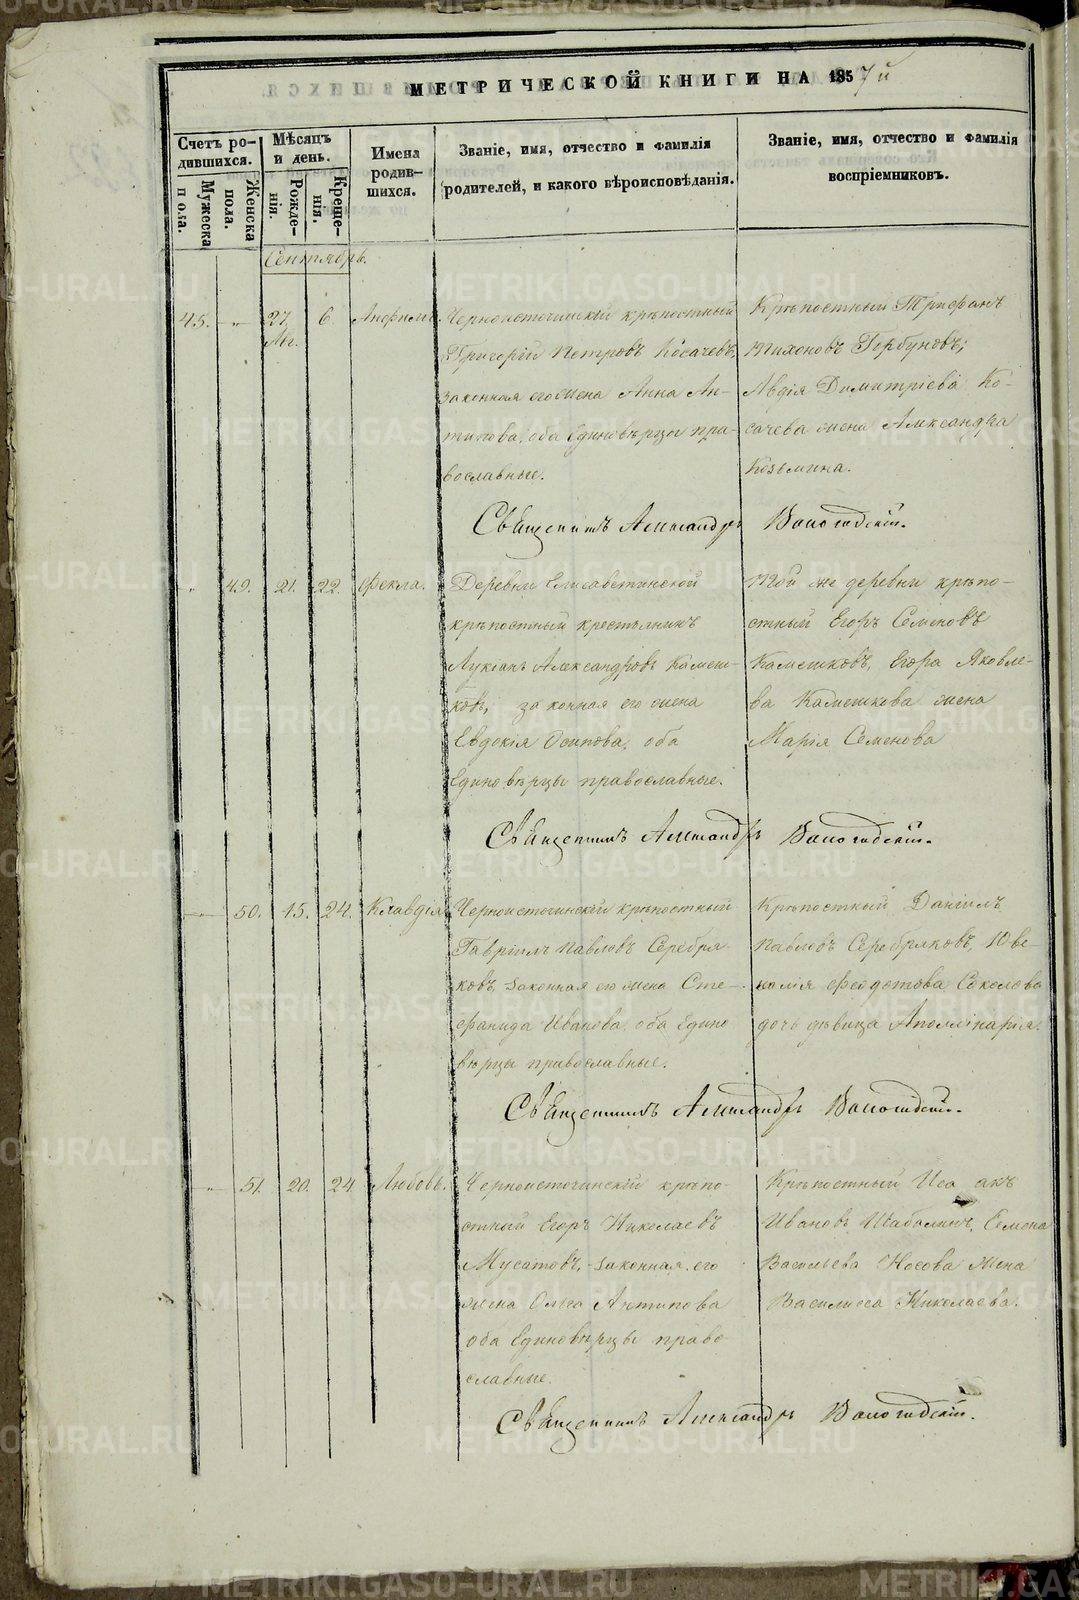 МЕТРИЧЕСКОЙ КНИГИ НА 1857й
Счетъ родившихся.
Мужеска пола.
Женска пола.
Мѣсяцъ и день.
Рожденія.
Крещенія.
Имена родившихся.
Званіе, имя, отчество и фамилія
родителей, и какого вѣроисповѣданія.
Званіе, имя, отчество и фамилія
воспріемниковъ.
Сентябрь.
45. 27 Авг. 6. Анфимъ
Черноисточинскій крѣпостный
Григорій Петровъ Косачевъ,
законная его жена Анна Ан-
типова, оба Единовѣрцы пра-
вославные.
Крѣпостный Трифанъ
Тихоновъ Горбуновъ;
Авдія Димитріева Ко-
сачева жена Александра
Козьмина.
Священникъ Александръ Вологодскій.
49. 21. 22. Фекла.
Деревни Елисаветинской
крѣпостный крестьянинъ
Лукіанъ Александровъ Камеш-
ковъ, законная его жена
Евдокія Осипова, оба
Единовѣрцы православные.
Той же деревни крѣпо-
стный Егоръ Семеновъ
Камешковъ, Егора Яковле-
ва Камешкова жена
Марія Семенова
Священникъ Александръ Вологодскій.
50. 15. 24. Клавдія
Черноисточинскій крѣпостный
Гавріилъ Павловъ Серебря-
ковъ, законная его жена Сте-
фанида Иванова, оба Едино
вѣрцы православные.
Крѣпостный Даніилъ
Павловъ Серебряковъ, Юве-
налія Федотова Соколова
дочь дѣвица Аполлинарія.
Священникъ Александръ Вологодскій.
51. 20. 24. Любовь.
Черноисточинскій крѣпо-
стный Егоръ Николаевъ
Мусатовъ, законная его
жена Ольга Антипова
оба Единовѣрцы право
славные.
Крѣпостный Исаакъ
Ивановъ Шабалинъ, Семена
Васильева Носова жена
Василиса Николаева.
Священникъ Александръ Вологодскій.
METRIKI.GASO-URAL.RU